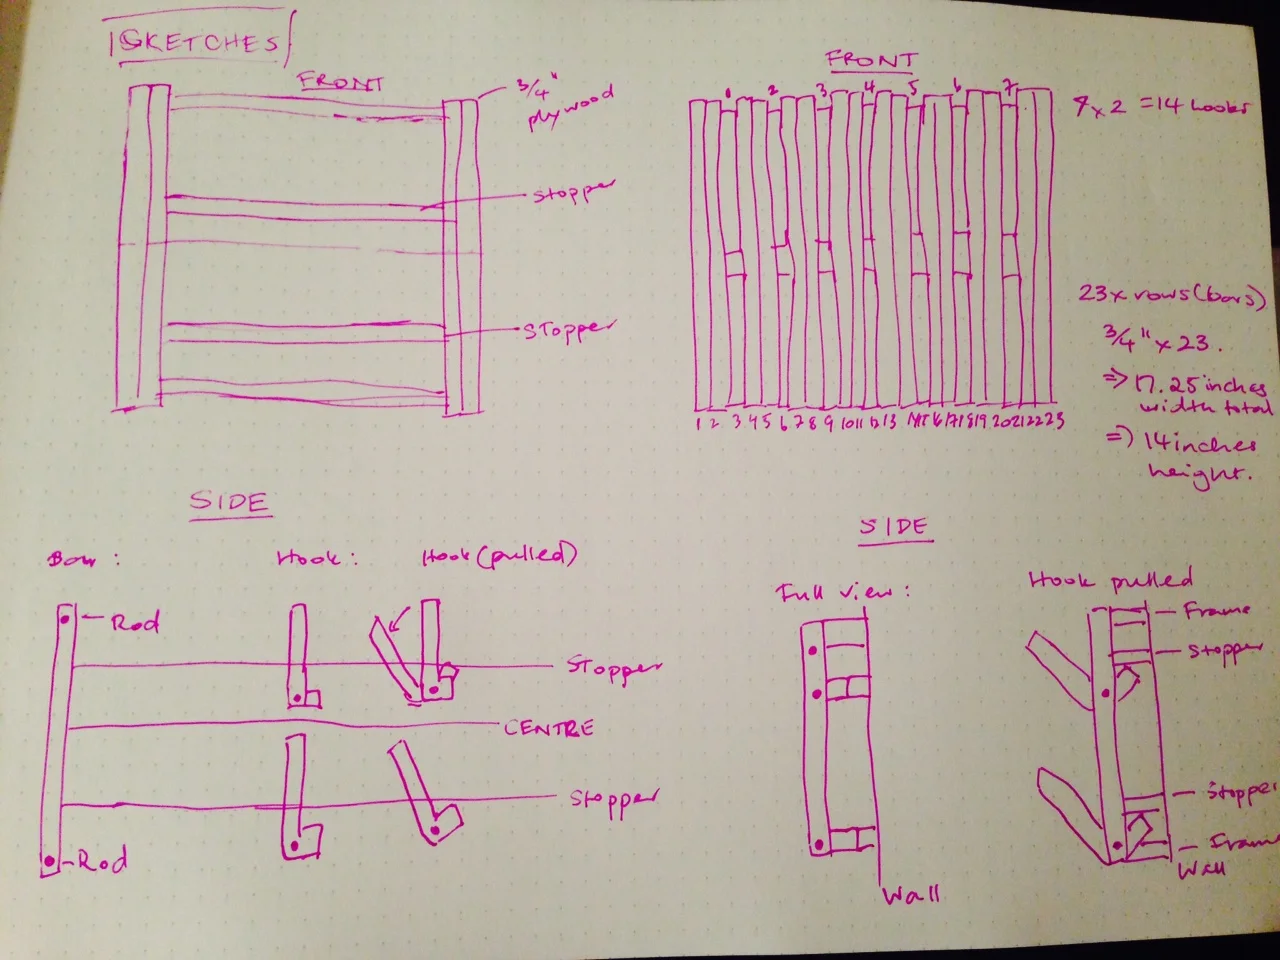 SKETCHES
FRONT
3/4"
plywood
stopper
STopper
FRONT
1 2 3 4 5 6 7
7 x 2 = 14 hooks
23 x rows (bars)
3/4" x 23.
=> 17.25 inches
width total
=> 14 inches
height.
1 2 3 4 5 6 7 8 9 10 11 12 13 16 17 18 19 20 21 22 23
SIDE
Bar :
Hook :
Hook (pulled)
Rod
Stopper
CENTRE
Stopper
Rod
SIDE
Full view :
Hook pulled
Frame
Stopper
Stopper
Frame
Wall
Wall